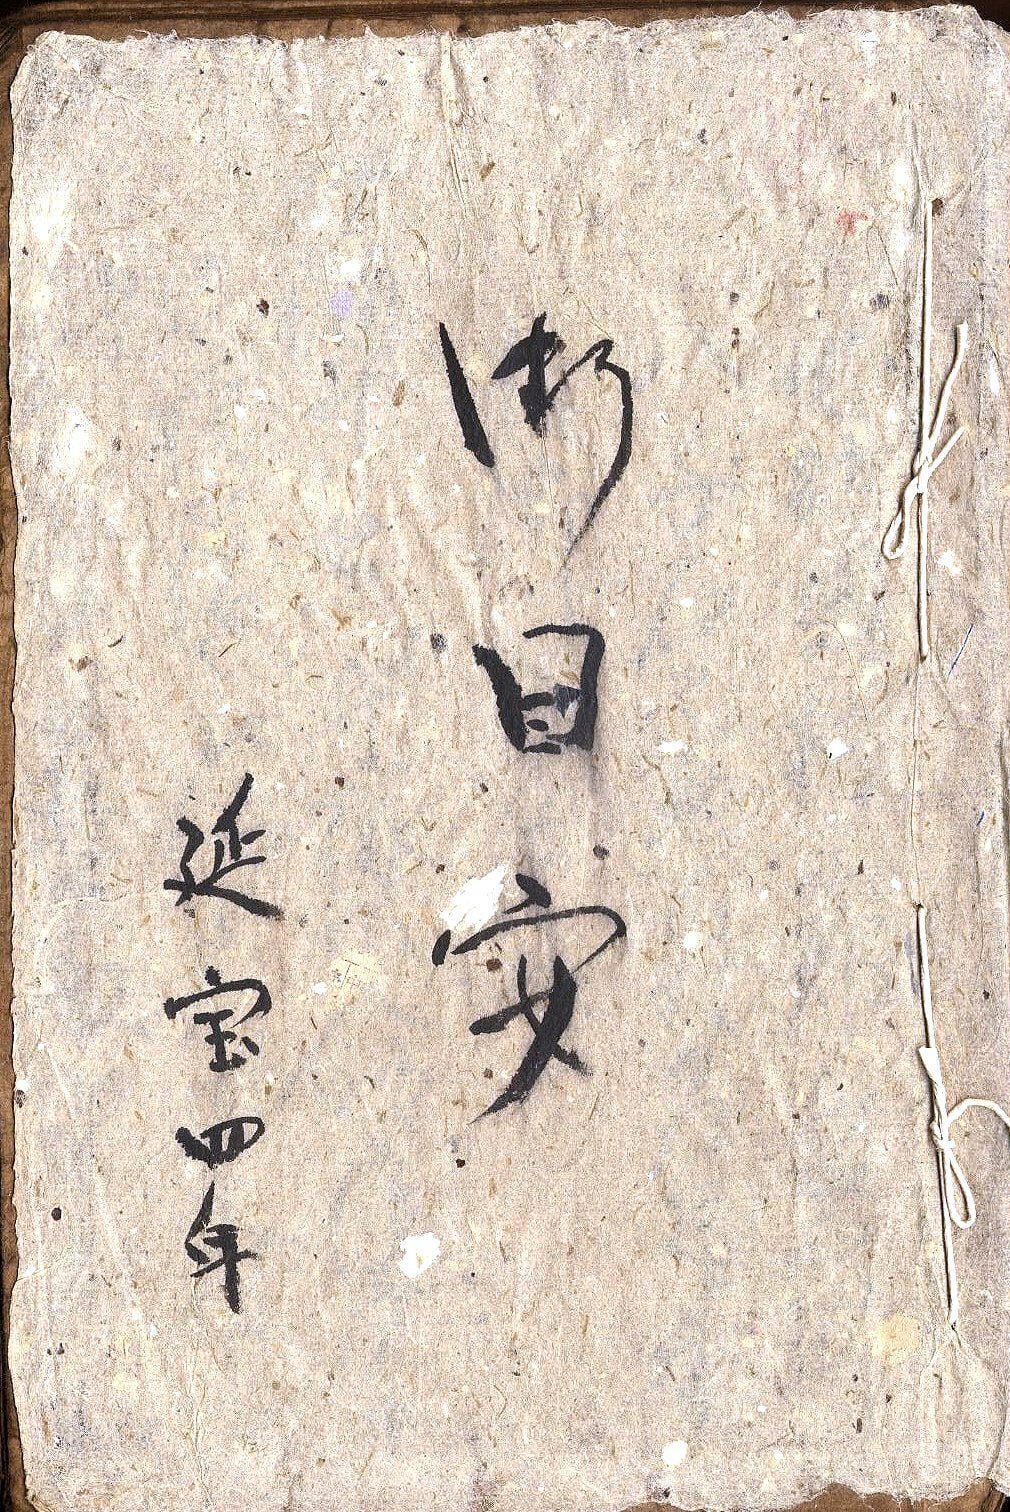 御日安
延宝四年